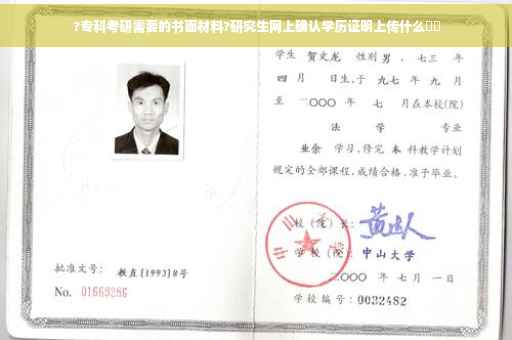 ?专科考研需要的书面材料?研究生网上确认学历证明上传什么▯▯
学生 贺文龙 性别 男 、七三 年
四 月 日生,于 九七 年 九 月
至 二〇〇〇 年 七 月在本校(院)
法 学 专业
业余 学习,修完 本 科教学计划
规定的全部课程,成绩合格,准予毕业。
校 (院) 长:
学 校 (院): 中山大学
二〇〇〇 年 七 月 一 日
学校编号: 0032482
批准文号: 教直[1993]8号
No. 01669286